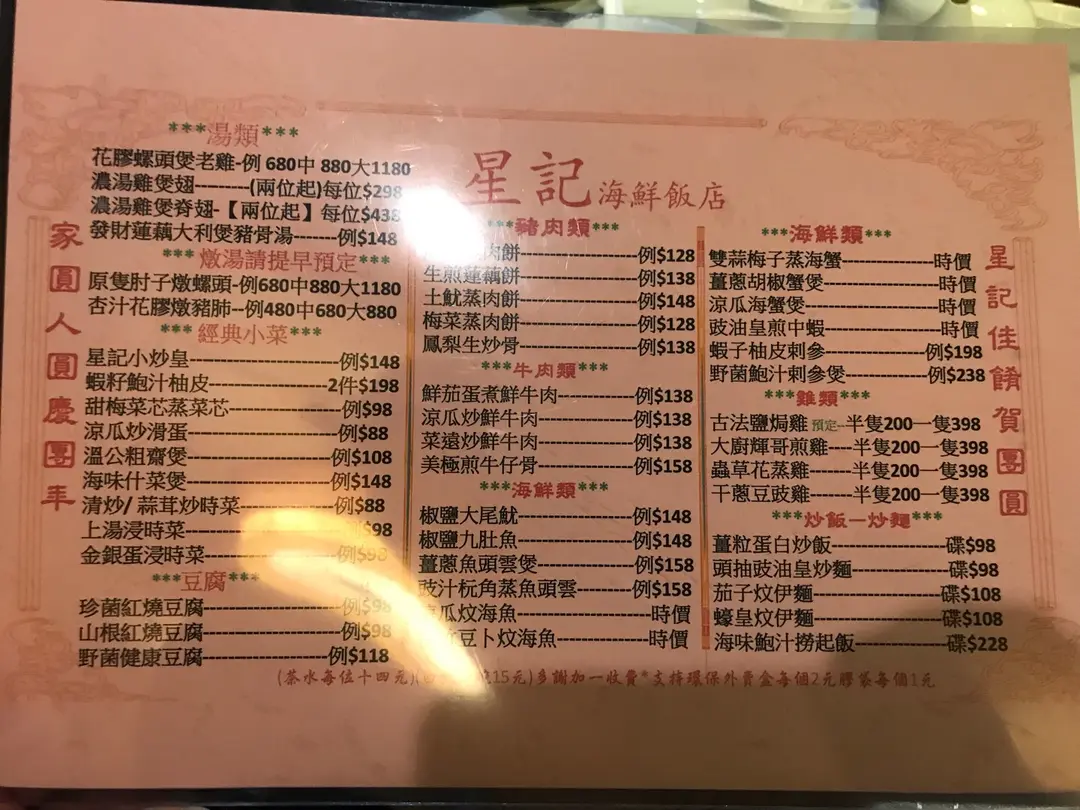 星記海鮮飯店
家圓人圓慶團年
***湯類***
花膠螺頭煲老雞-例 680中 880大1180
濃湯雞煲翅--------(兩位起)每位$298
濃湯雞煲脊翅-【兩位起】每位$438
發財蓮藕大利煲豬骨湯-------例$148
*** 燉湯請提早預定***
原隻肘子燉螺頭-例680中880大1180
杏汁花膠燉豬肺--例480中680大880
*** 經典小菜***
星記小炒皇--------------------例$148
蝦籽鮑汁柚皮----------------2件$198
甜梅菜芯蒸菜芯---------------例$98
涼瓜炒滑蛋--------------------例$88
溫公粗齋煲-------------------例$108
海味什菜煲-------------------例$148
清炒/ 蒜茸炒時菜-------------例$88
上湯浸時菜-------------------例$98
金銀蛋浸時菜----------------例$98
***豆腐***
珍菌紅燒豆腐-----------------例$98
山根紅燒豆腐-----------------例$98
野菌健康豆腐----------------例$118
***豬肉類***
肉餅--------------例$128
生煎蓮藕餅--------------例$138
土魷蒸肉餅--------------例$148
梅菜蒸肉餅--------------例$128
鳳梨生炒骨--------------例$138
***牛肉類***
鮮茄蛋煮鮮牛肉---------例$138
涼瓜炒鮮牛肉------------例$138
菜遠炒鮮牛肉------------例$138
美極煎牛仔骨------------例$158
***海鮮類***
椒鹽大尾魷--------------例$148
椒鹽九肚魚--------------例$148
薑蔥魚頭雲煲------------例$158
豉汁杬角蒸魚頭雲-------例$158
瓜炆海魚---------------時價
豆卜炆海魚------------時價
***海鮮類***
雙蒜梅子蒸海蟹------------時價
薑蔥胡椒蟹煲---------------時價
涼瓜海蟹煲-----------------時價
豉油皇煎中蝦---------------時價
蝦子柚皮刺參-------------例$198
野菌鮑汁刺參煲-----------例$238
***雞類***
古法鹽焗雞 預定--半隻200一隻398
大廚輝哥煎雞----半隻200一隻398
蟲草花蒸雞-----半隻200一隻398
干蔥豆豉雞-----半隻200一隻398
***炒飯一炒麵***
薑粒蛋白炒飯---------------碟$98
頭抽豉油皇炒麵------------碟$98
茄子炆伊麵----------------碟$108
蠔皇炆伊麵----------------碟$108
海味鮑汁撈起飯-----------碟$228
星記佳餚賀團圓
(茶水每位十四元)(15元)多謝加一收費*支持環保外賣盒每個2元膠袋每個1元